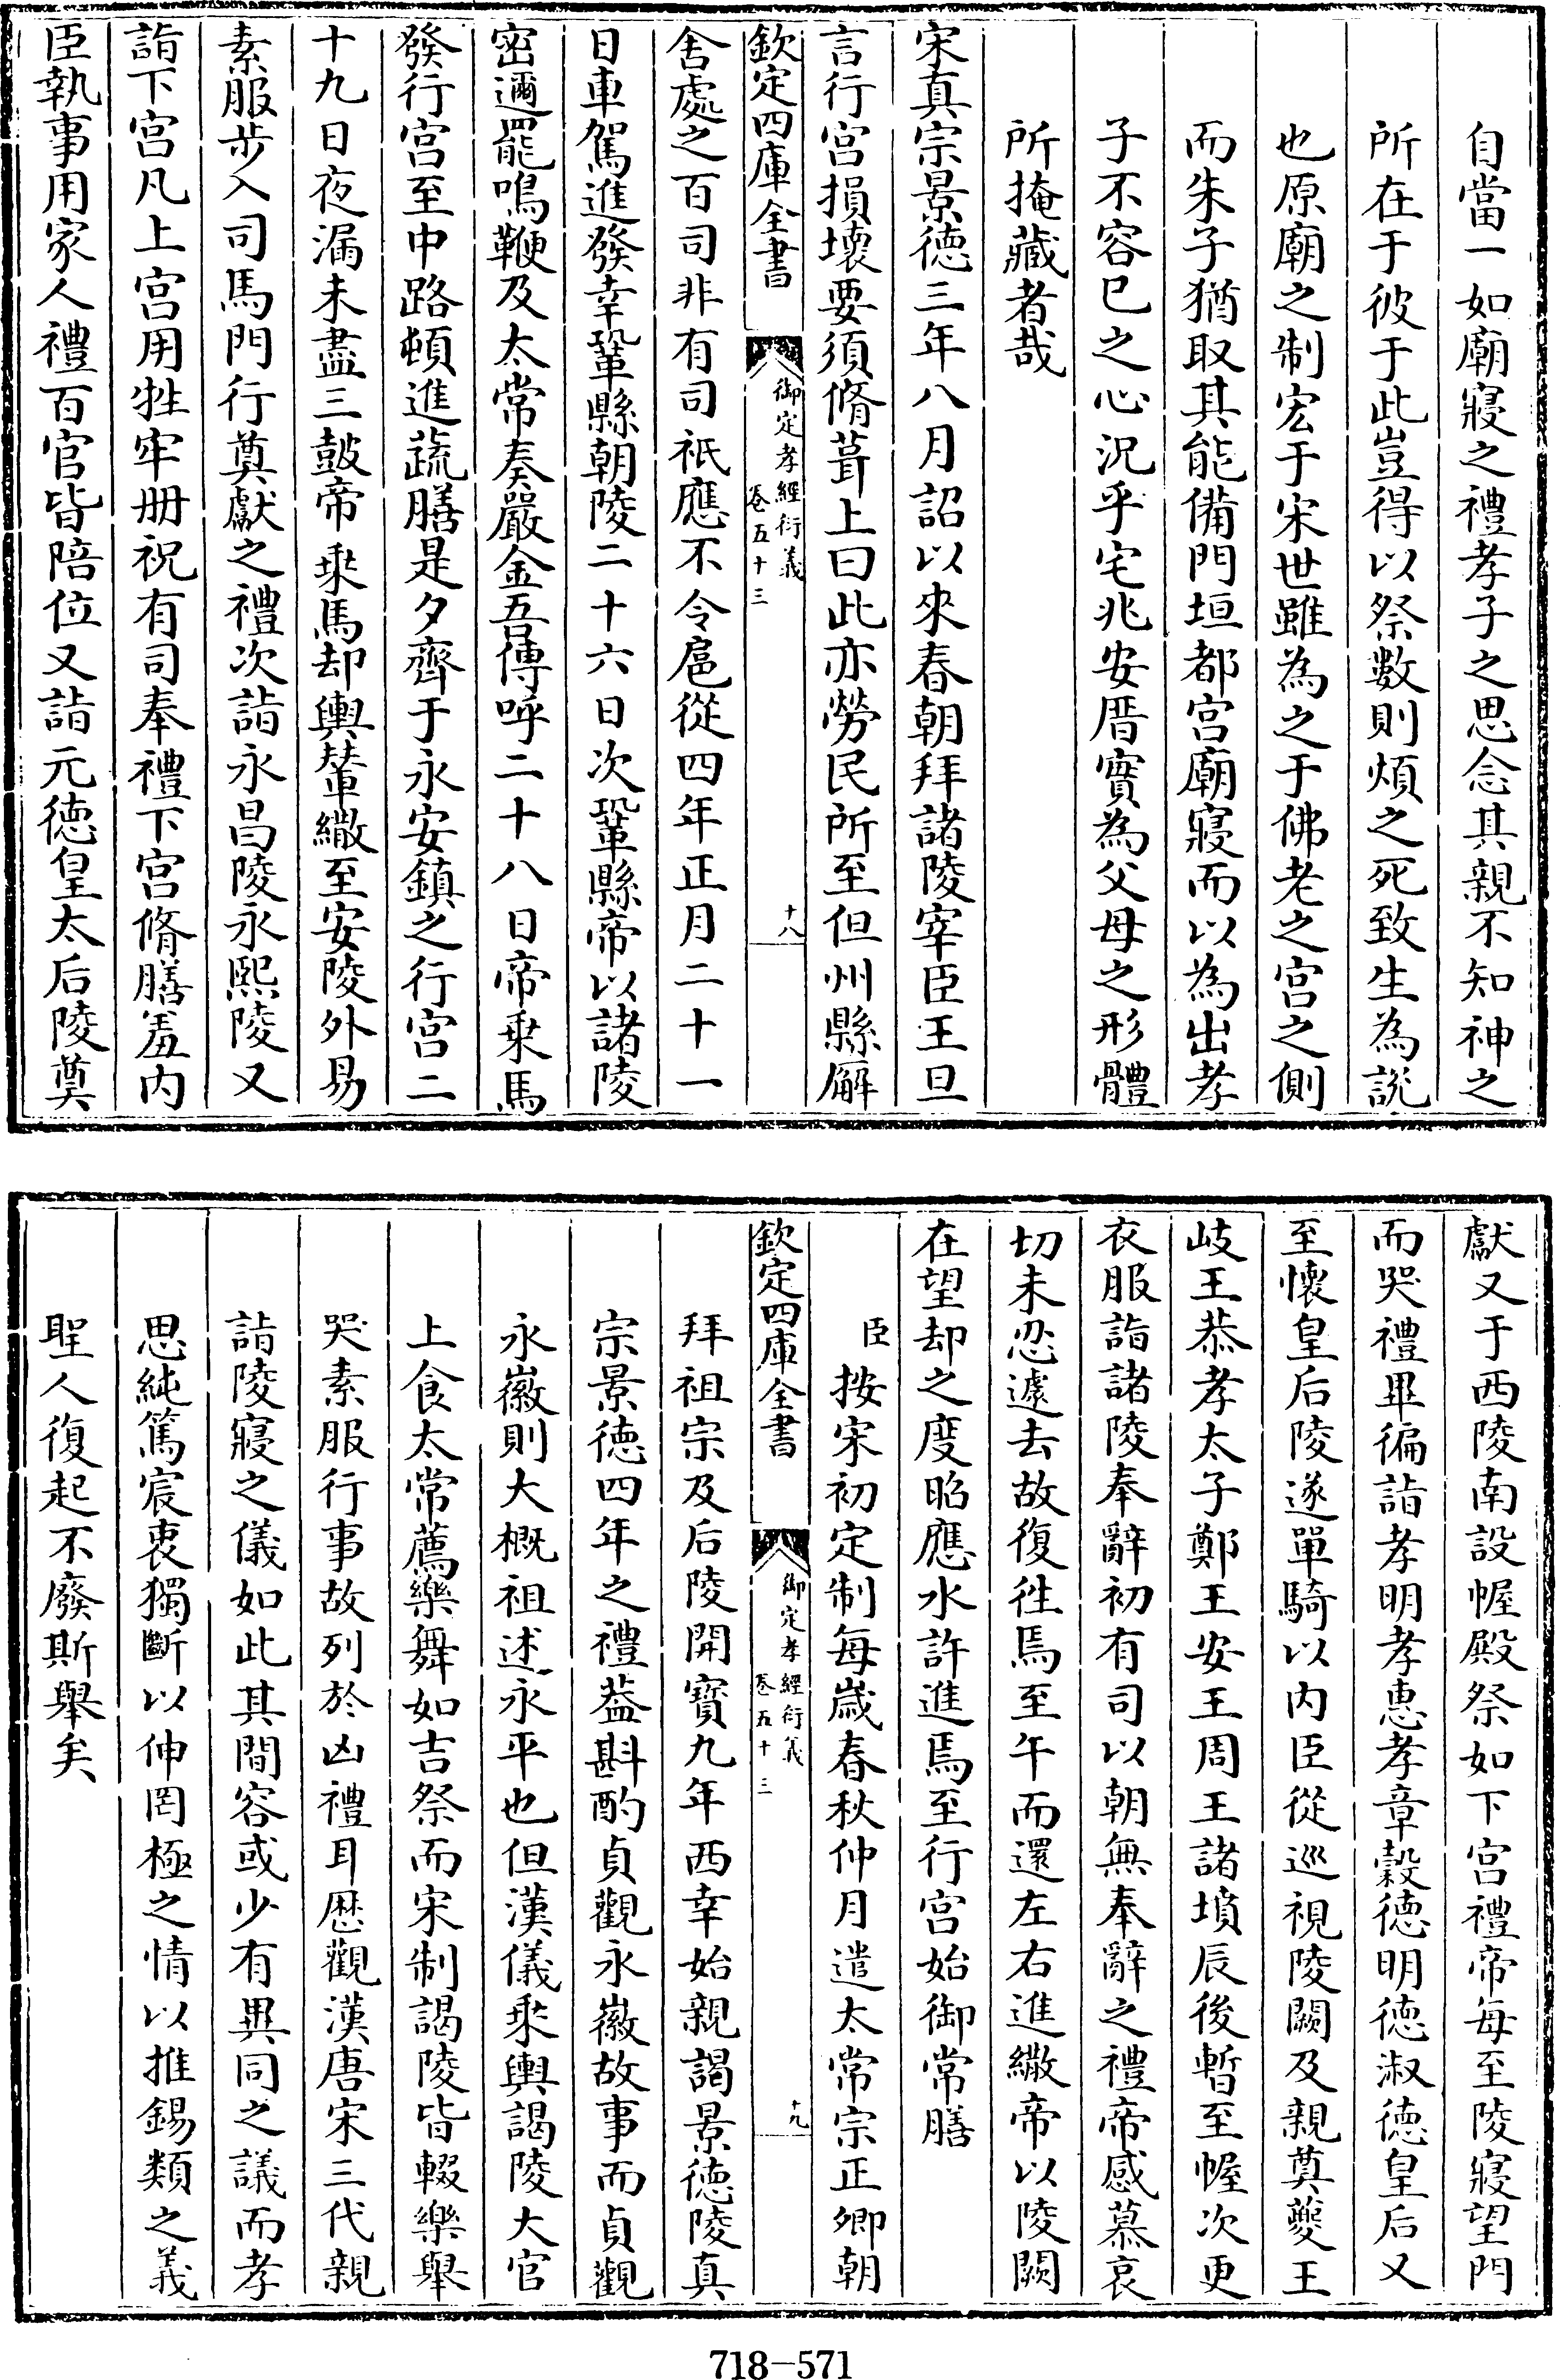 自當一如廟寢之禮孝子之思念其親不知神之
所在于彼于此豈得以祭數則煩之死致生為說
也原廟之制宏于宋世雖為之于佛老之宫之側
而朱子猶取其能備門垣都宫廟寢而以為出孝
子不容已之心況乎宅兆安厝實為父母之形體
所掩藏者哉
宋真宗景徳三年八月詔以來春朝拜諸陵宰臣王旦
言行宫損壞要須脩葺上曰此亦勞民所至但州縣廨
欽定四庫全書
御定孝經衍義
卷五十三
十八
舍處之百司非有司祇應不令扈從四年正月二十一
日車駕進發幸鞏縣朝陵二十六日次鞏縣帝以諸陵
密邇罷鳴鞭及太常奏嚴金吾傳呼二十八日帝乗馬
發行宫至中路頓進蔬膳是夕齊于永安鎮之行宫二
十九日夜漏未盡三鼓帝乗馬却輿輦繖至安陵外易
素服步入司馬門行奠獻之禮次詣永昌陵永熙陵又
詣下宫凡上宫用牲牢册祝有司奉禮下宫脩膳羞内
臣執事用家人禮百官皆陪位又詣元徳皇太后陵奠
獻又于西陵南設幄殿祭如下宫禮帝每至陵寢望門
而哭禮畢徧詣孝明孝惠孝章穀徳明徳淑徳皇后又
至懷皇后陵遂單騎以内臣從巡視陵闕及親奠夔王
岐王恭孝太子鄭王安王周王諸墳辰後暫至幄次更
衣服詣諸陵奉辭初有司以朝無奉辭之禮帝感慕哀
切未忍遽去故復徃焉至午而還左右進繖帝以陵闕
在望却之度昭應水許進焉至行宫始御常膳
臣按宋初定制每嵗春秋仲月遣太常宗正卿朝
欽定四庫全書
御定孝經衍義
卷五十三
十九
拜祖宗及后陵開寳九年西幸始親謁景徳陵真
宗景徳四年之禮葢斟酌貞觀永徽故事而貞觀
永徽則大概祖述永平也但漢儀乗輿謁陵大官
上食太常薦樂舞如吉祭而宋制謁陵皆輟樂舉
哭素服行事故列於凶禮耳歴觀漢唐宋三代親
詣陵寢之儀如此其間容或少有異同之議而孝
思純篤宸衷獨斷以伸罔極之情以推錫類之義
聖人復起不廢斯舉矣
718-571